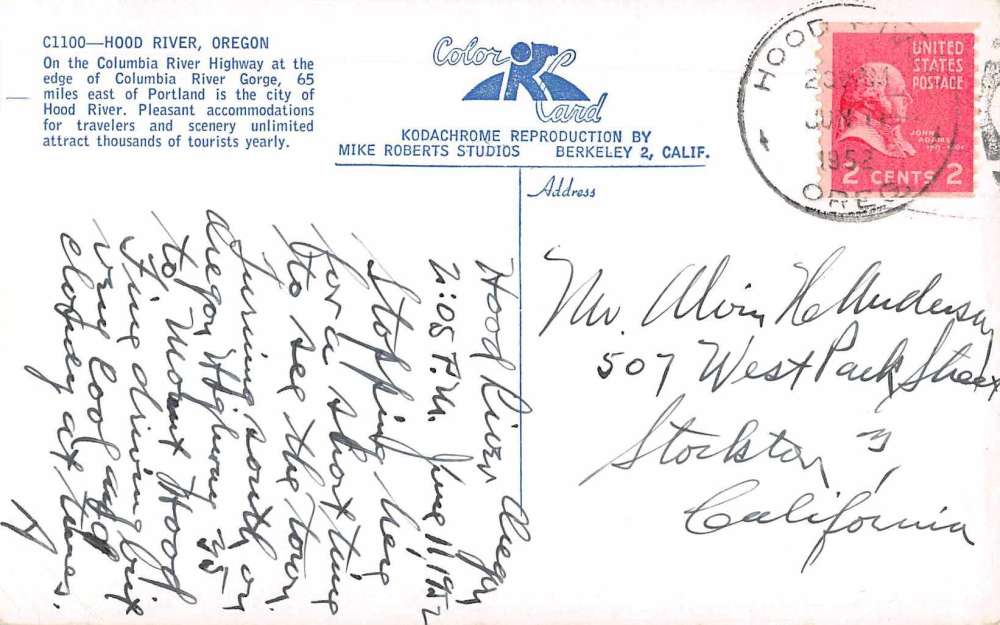 C1100—HOOD RIVER, OREGON
On the Columbia River Highway at the
edge of Columbia River Gorge, 65
miles east of Portland is the city of
Hood River. Pleasant accommodations
for travelers and scenery unlimited
attract thousands of tourists yearly.
Color
Card
KODACHROME REPRODUCTION BY
MIKE ROBERTS STUDIOS BERKELEY 2, CALIF.
HOOD
JUN
1952
OREG
UNITED
STATES
POSTAGE
JOHN
ADAMS
2 CENTS 2
Address
Mr. Alvin H Anderson
507 West Park Street
Stockton 3,
California
Hood River Oregon
2:05 P.M. June 11, 1952
Stopping here
for a short time
to see the town.
Turning south on
Oregon Highway 35
to Mount Hood
Fine driving but
very cool and
cloudy at times.
A